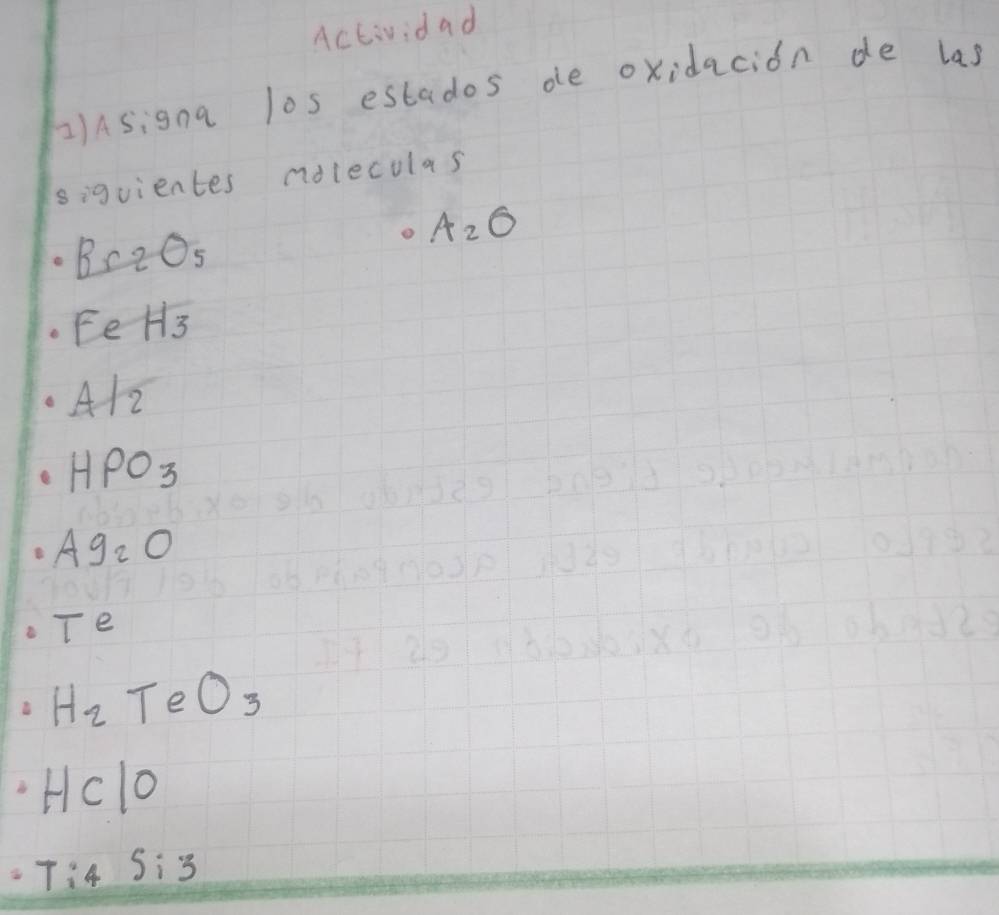 Actividad
1) Asigna los estados de oxidación de las
siguientes moleculas
• Br2O5
• A2O
• FeH3
• Al2
• HPO3
• Ag2O
• Te
• H2TeO3
• HClO
• Ti4Si3